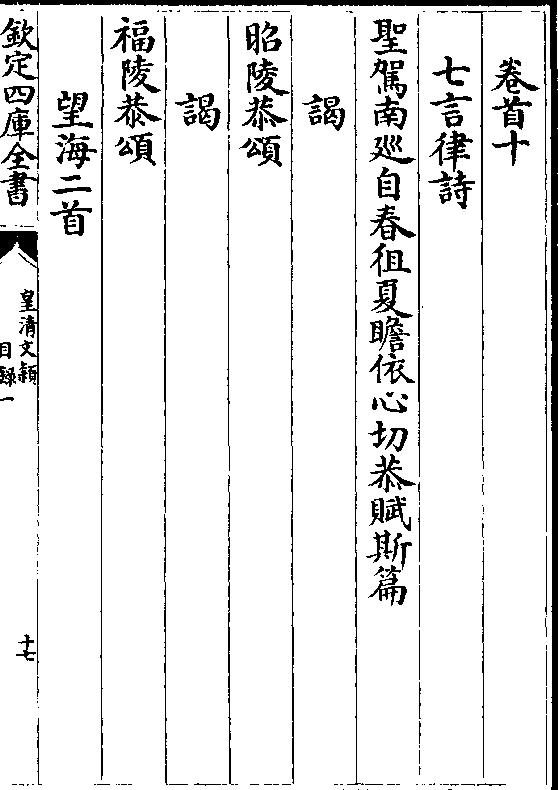 卷首十
七言律詩
聖駕南巡自春徂夏瞻依心切恭賦斯篇
謁
昭陵恭頌
謁
福陵恭頌
望海二首
欽定四庫全書
皇清文穎
目錄一
十七